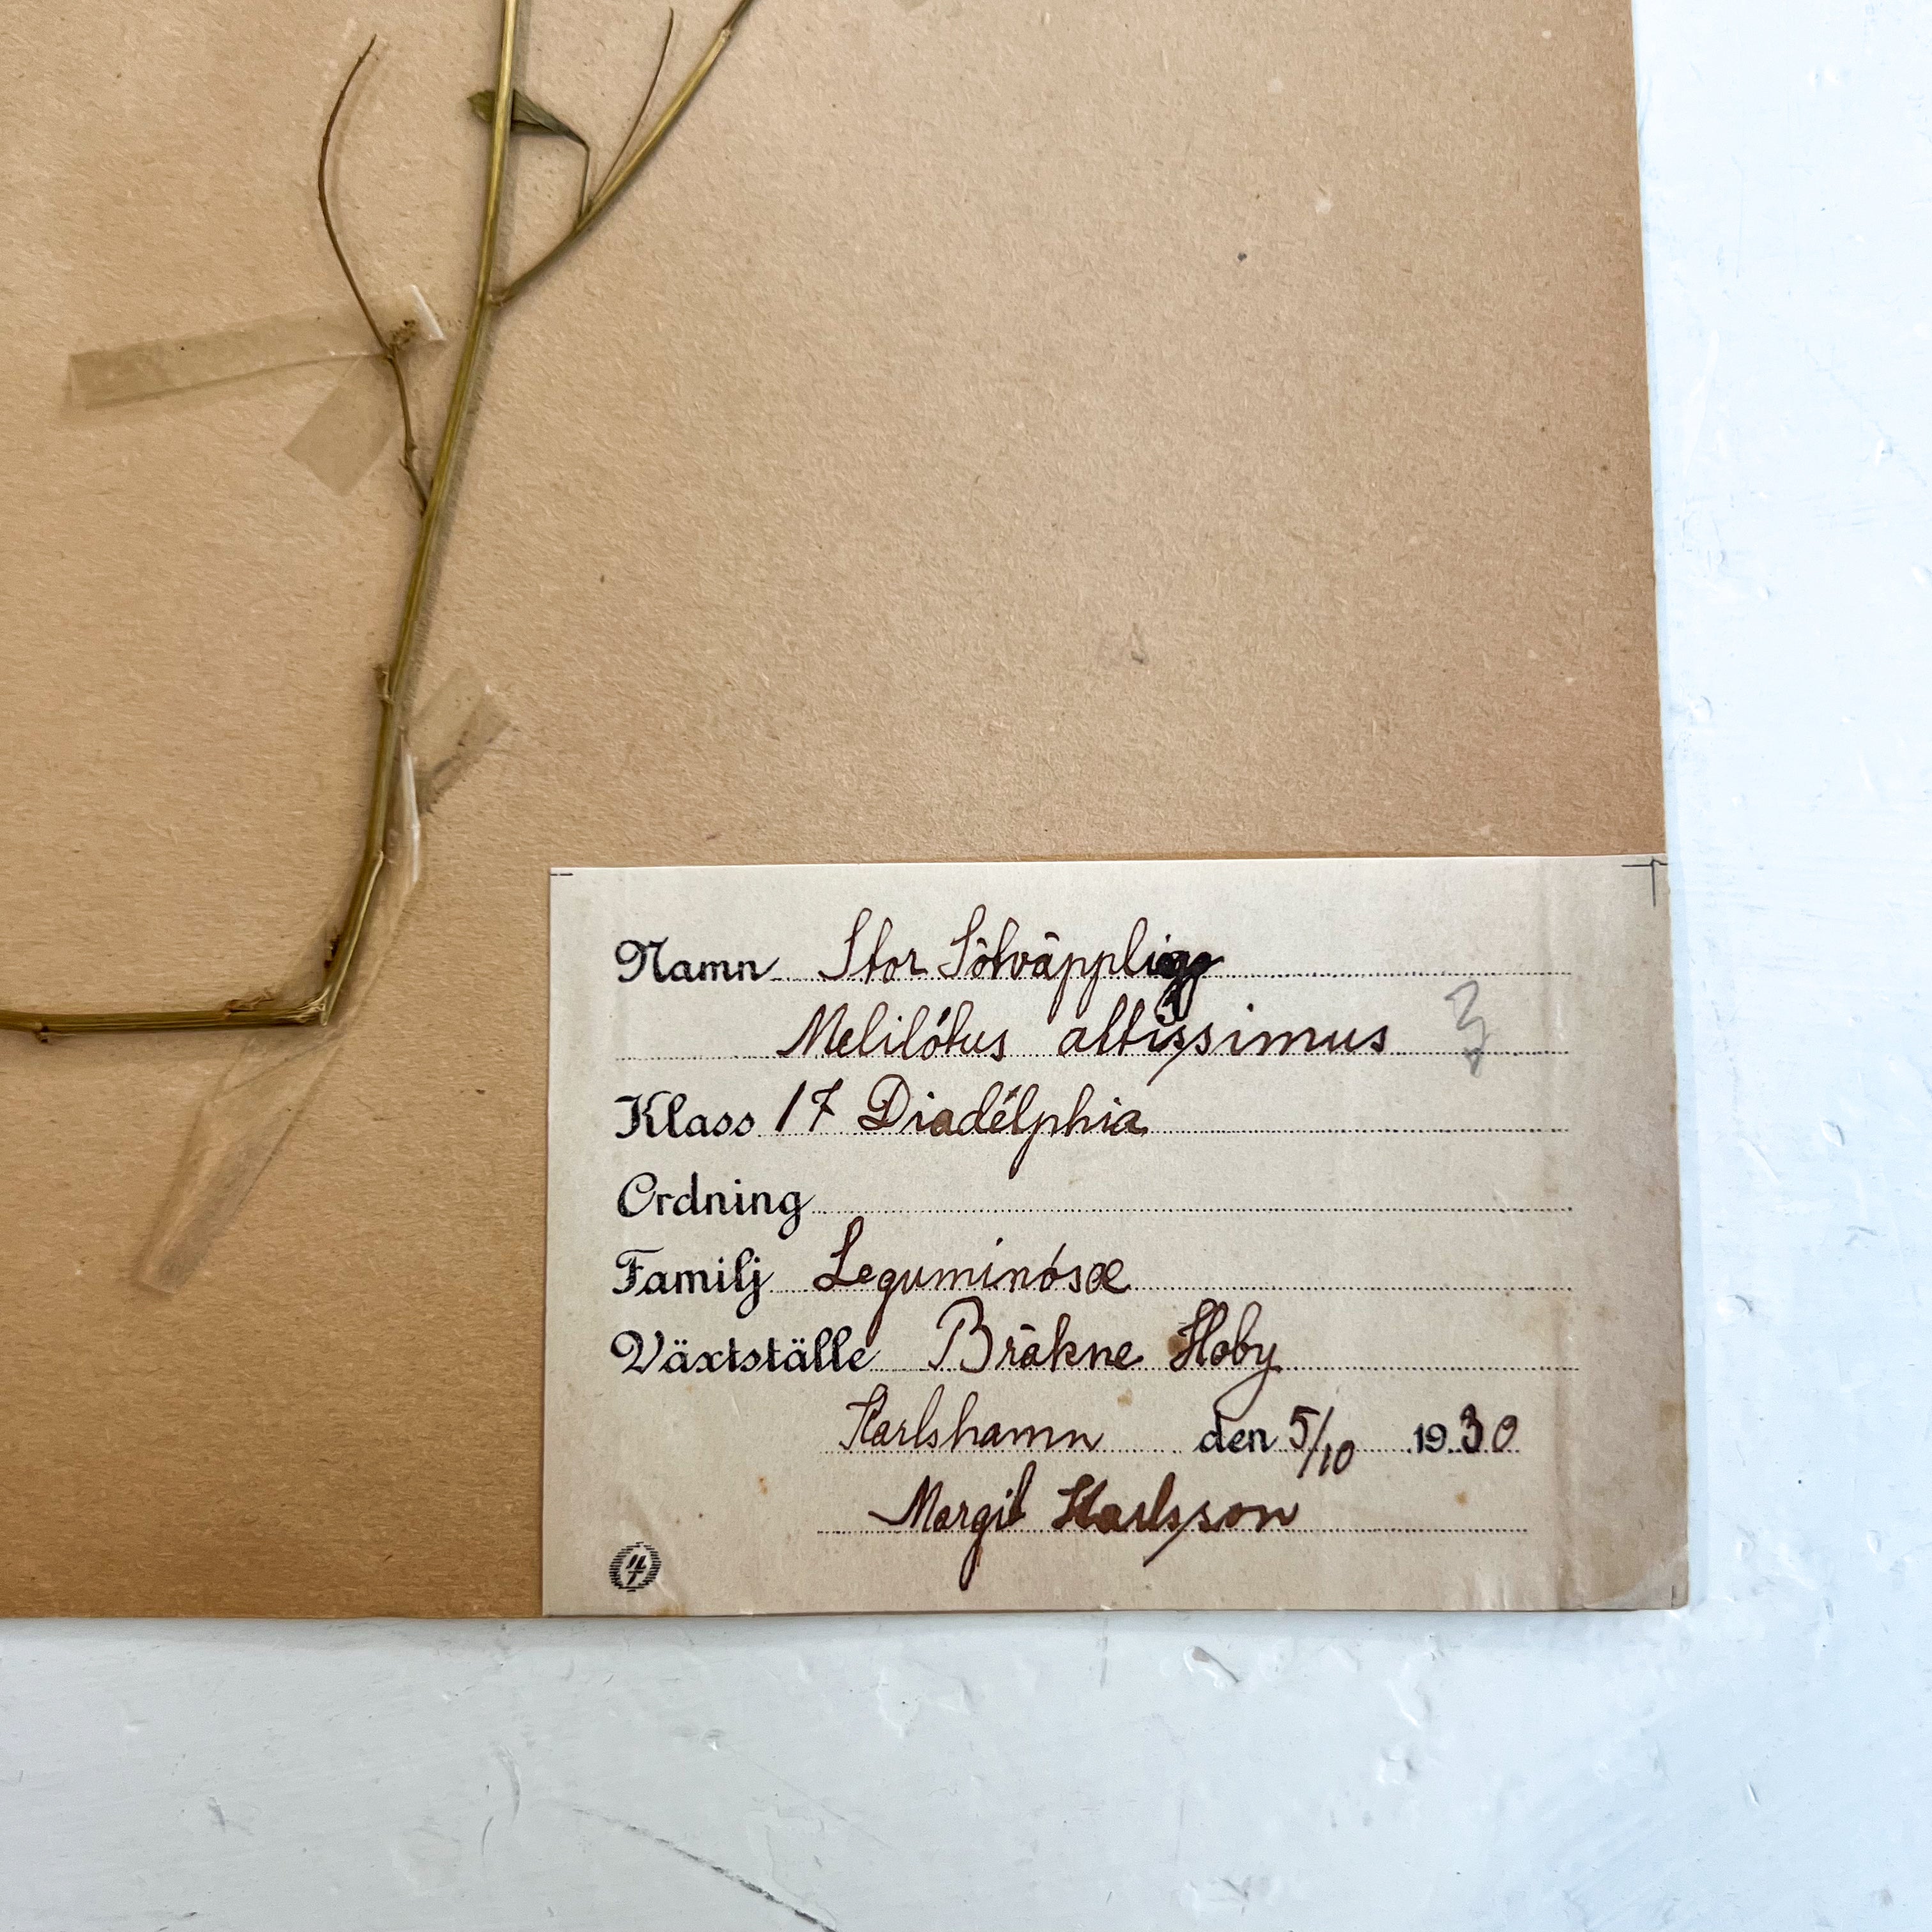 Namn Stor Sötväppling
Melilótus altissimus 3
Klass 17 Diadélphia
Ordning
Familj Leguminósæ
Växtställe Bräkne Hoby
Karlshamn den 5/10 1930
Margit Karlsson
4